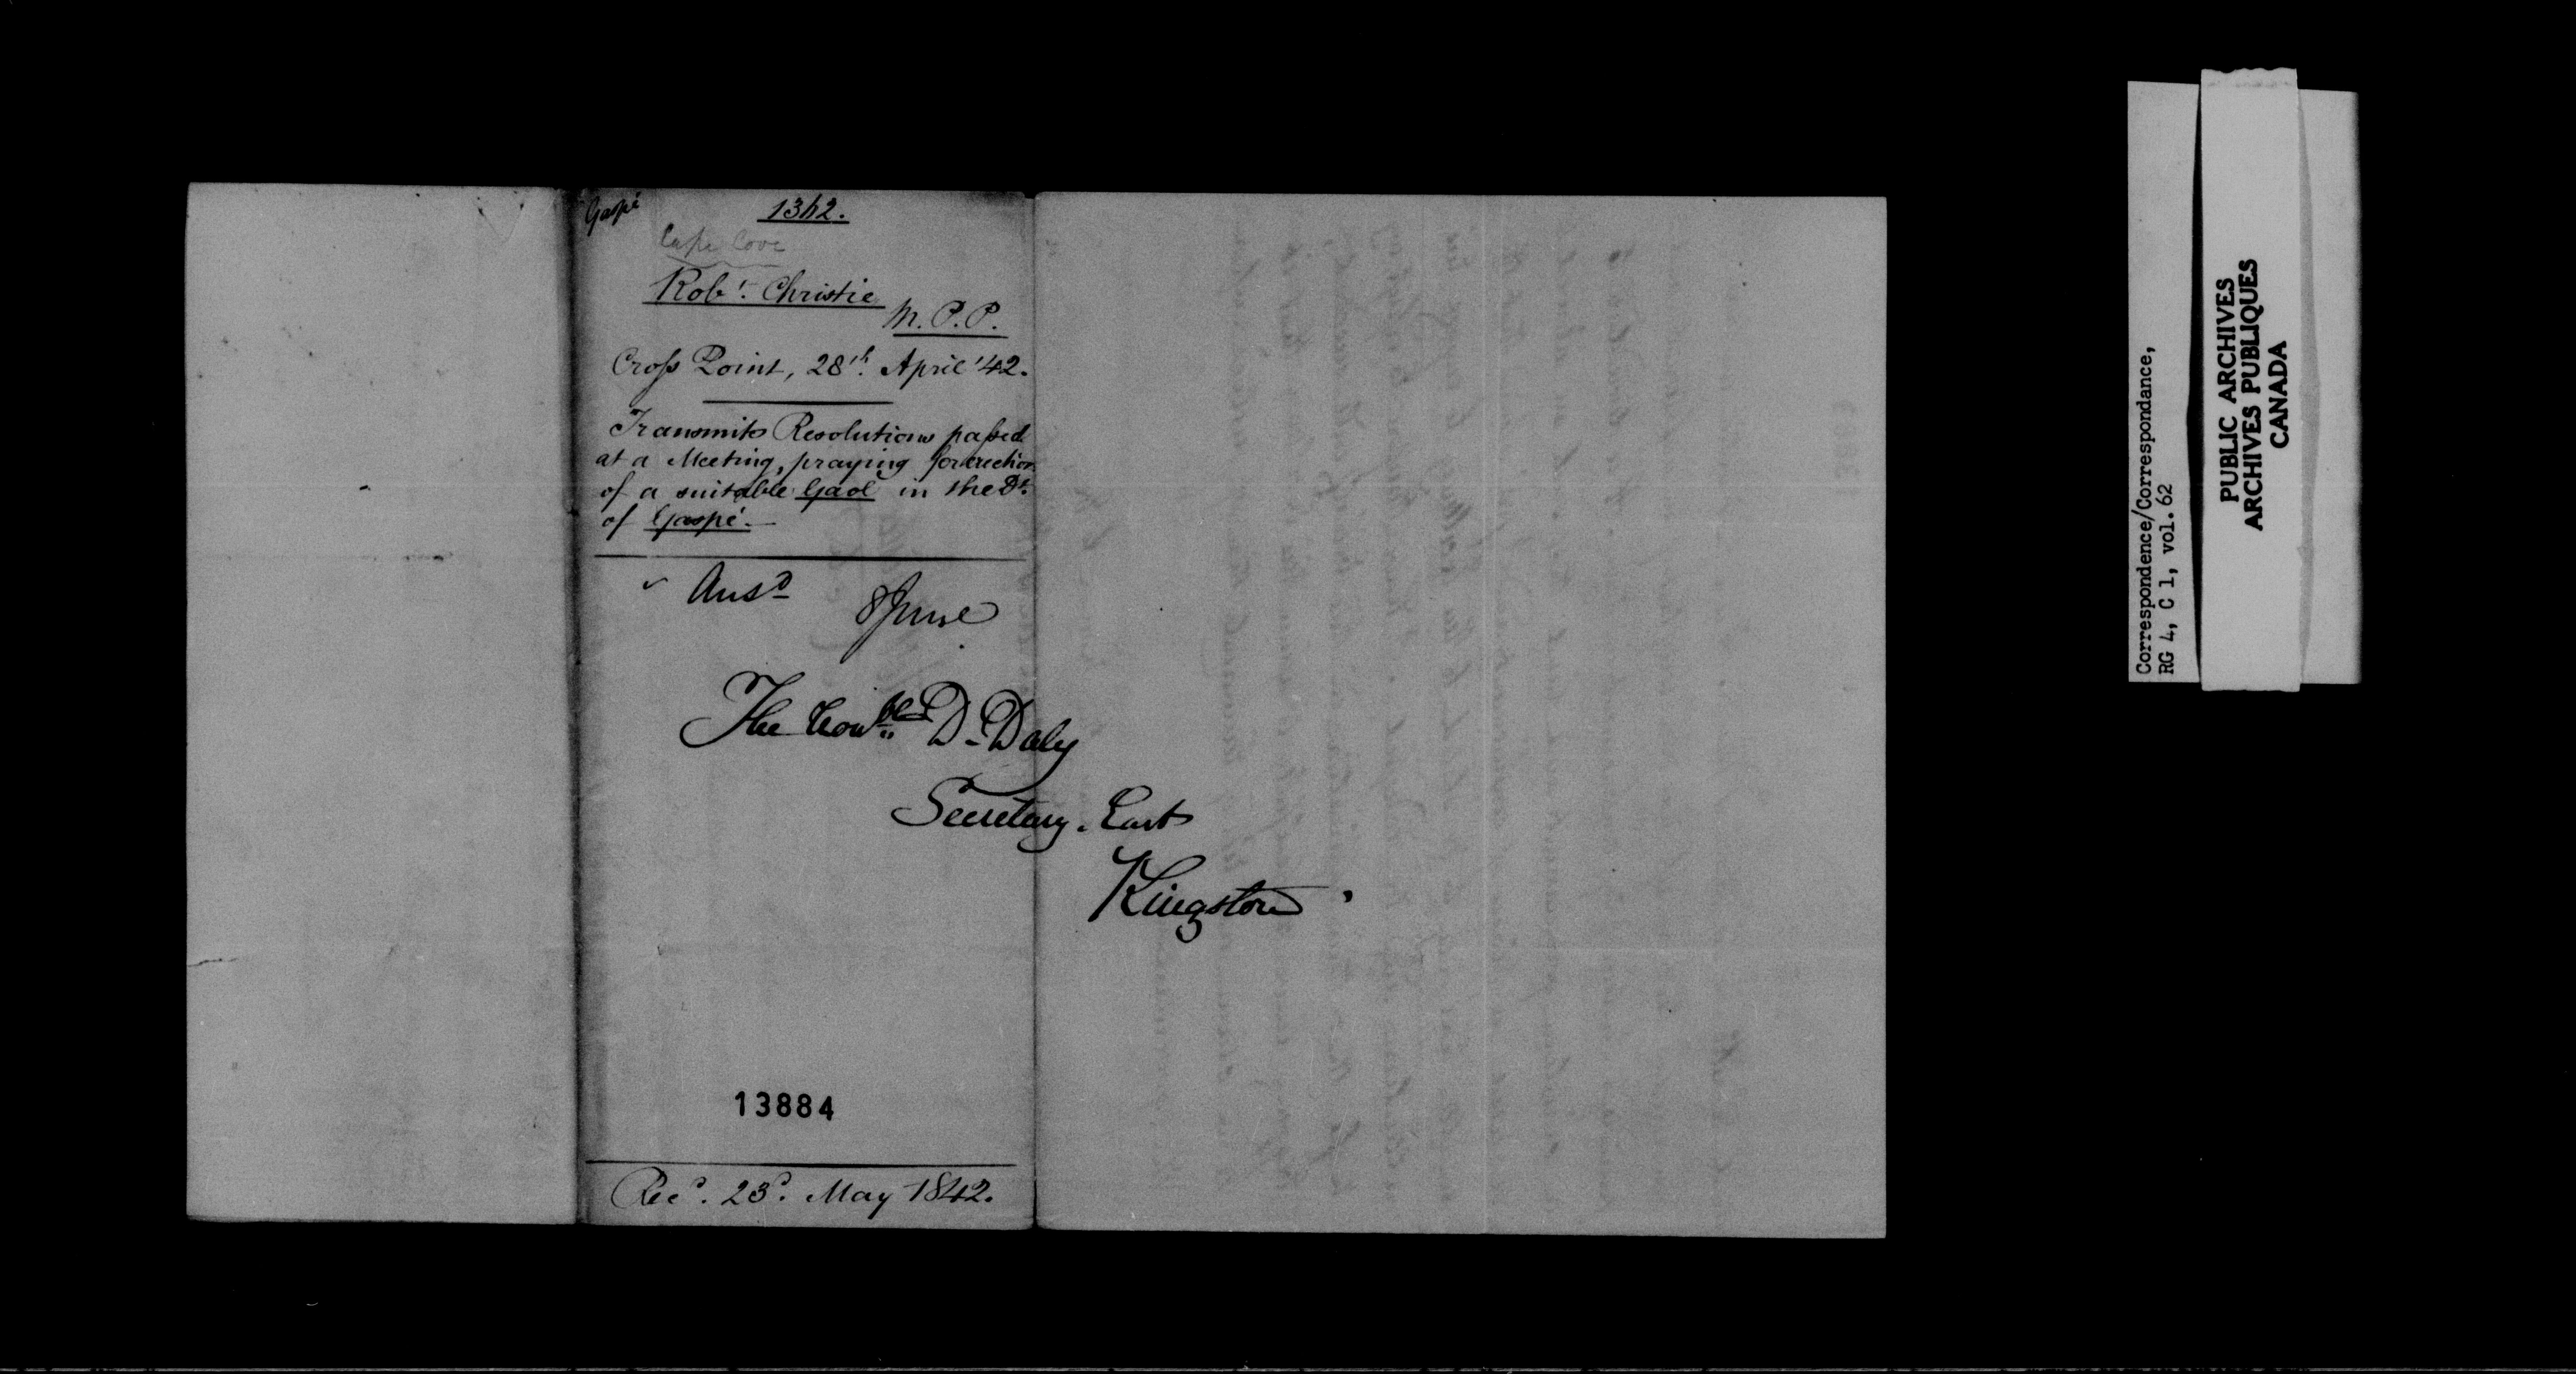 Gaspé
1362.
Cape Cove
Robt. Christie
M.P.P.
Cross Point, 28th. April '42.
Transmits Resolutions passed
at a Meeting, praying for erection
of a suitable Gaol in the Dt.
of Gaspé.—
Ansd
8 June
The Honble D. Daly
Secretary. East
Kingston
13884
Recd. 23d. May 1842.
Correspondence/Correspondance,
RG 4, C 1, vol. 62
PUBLIC ARCHIVES
ARCHIVES PUBLIQUES
CANADA